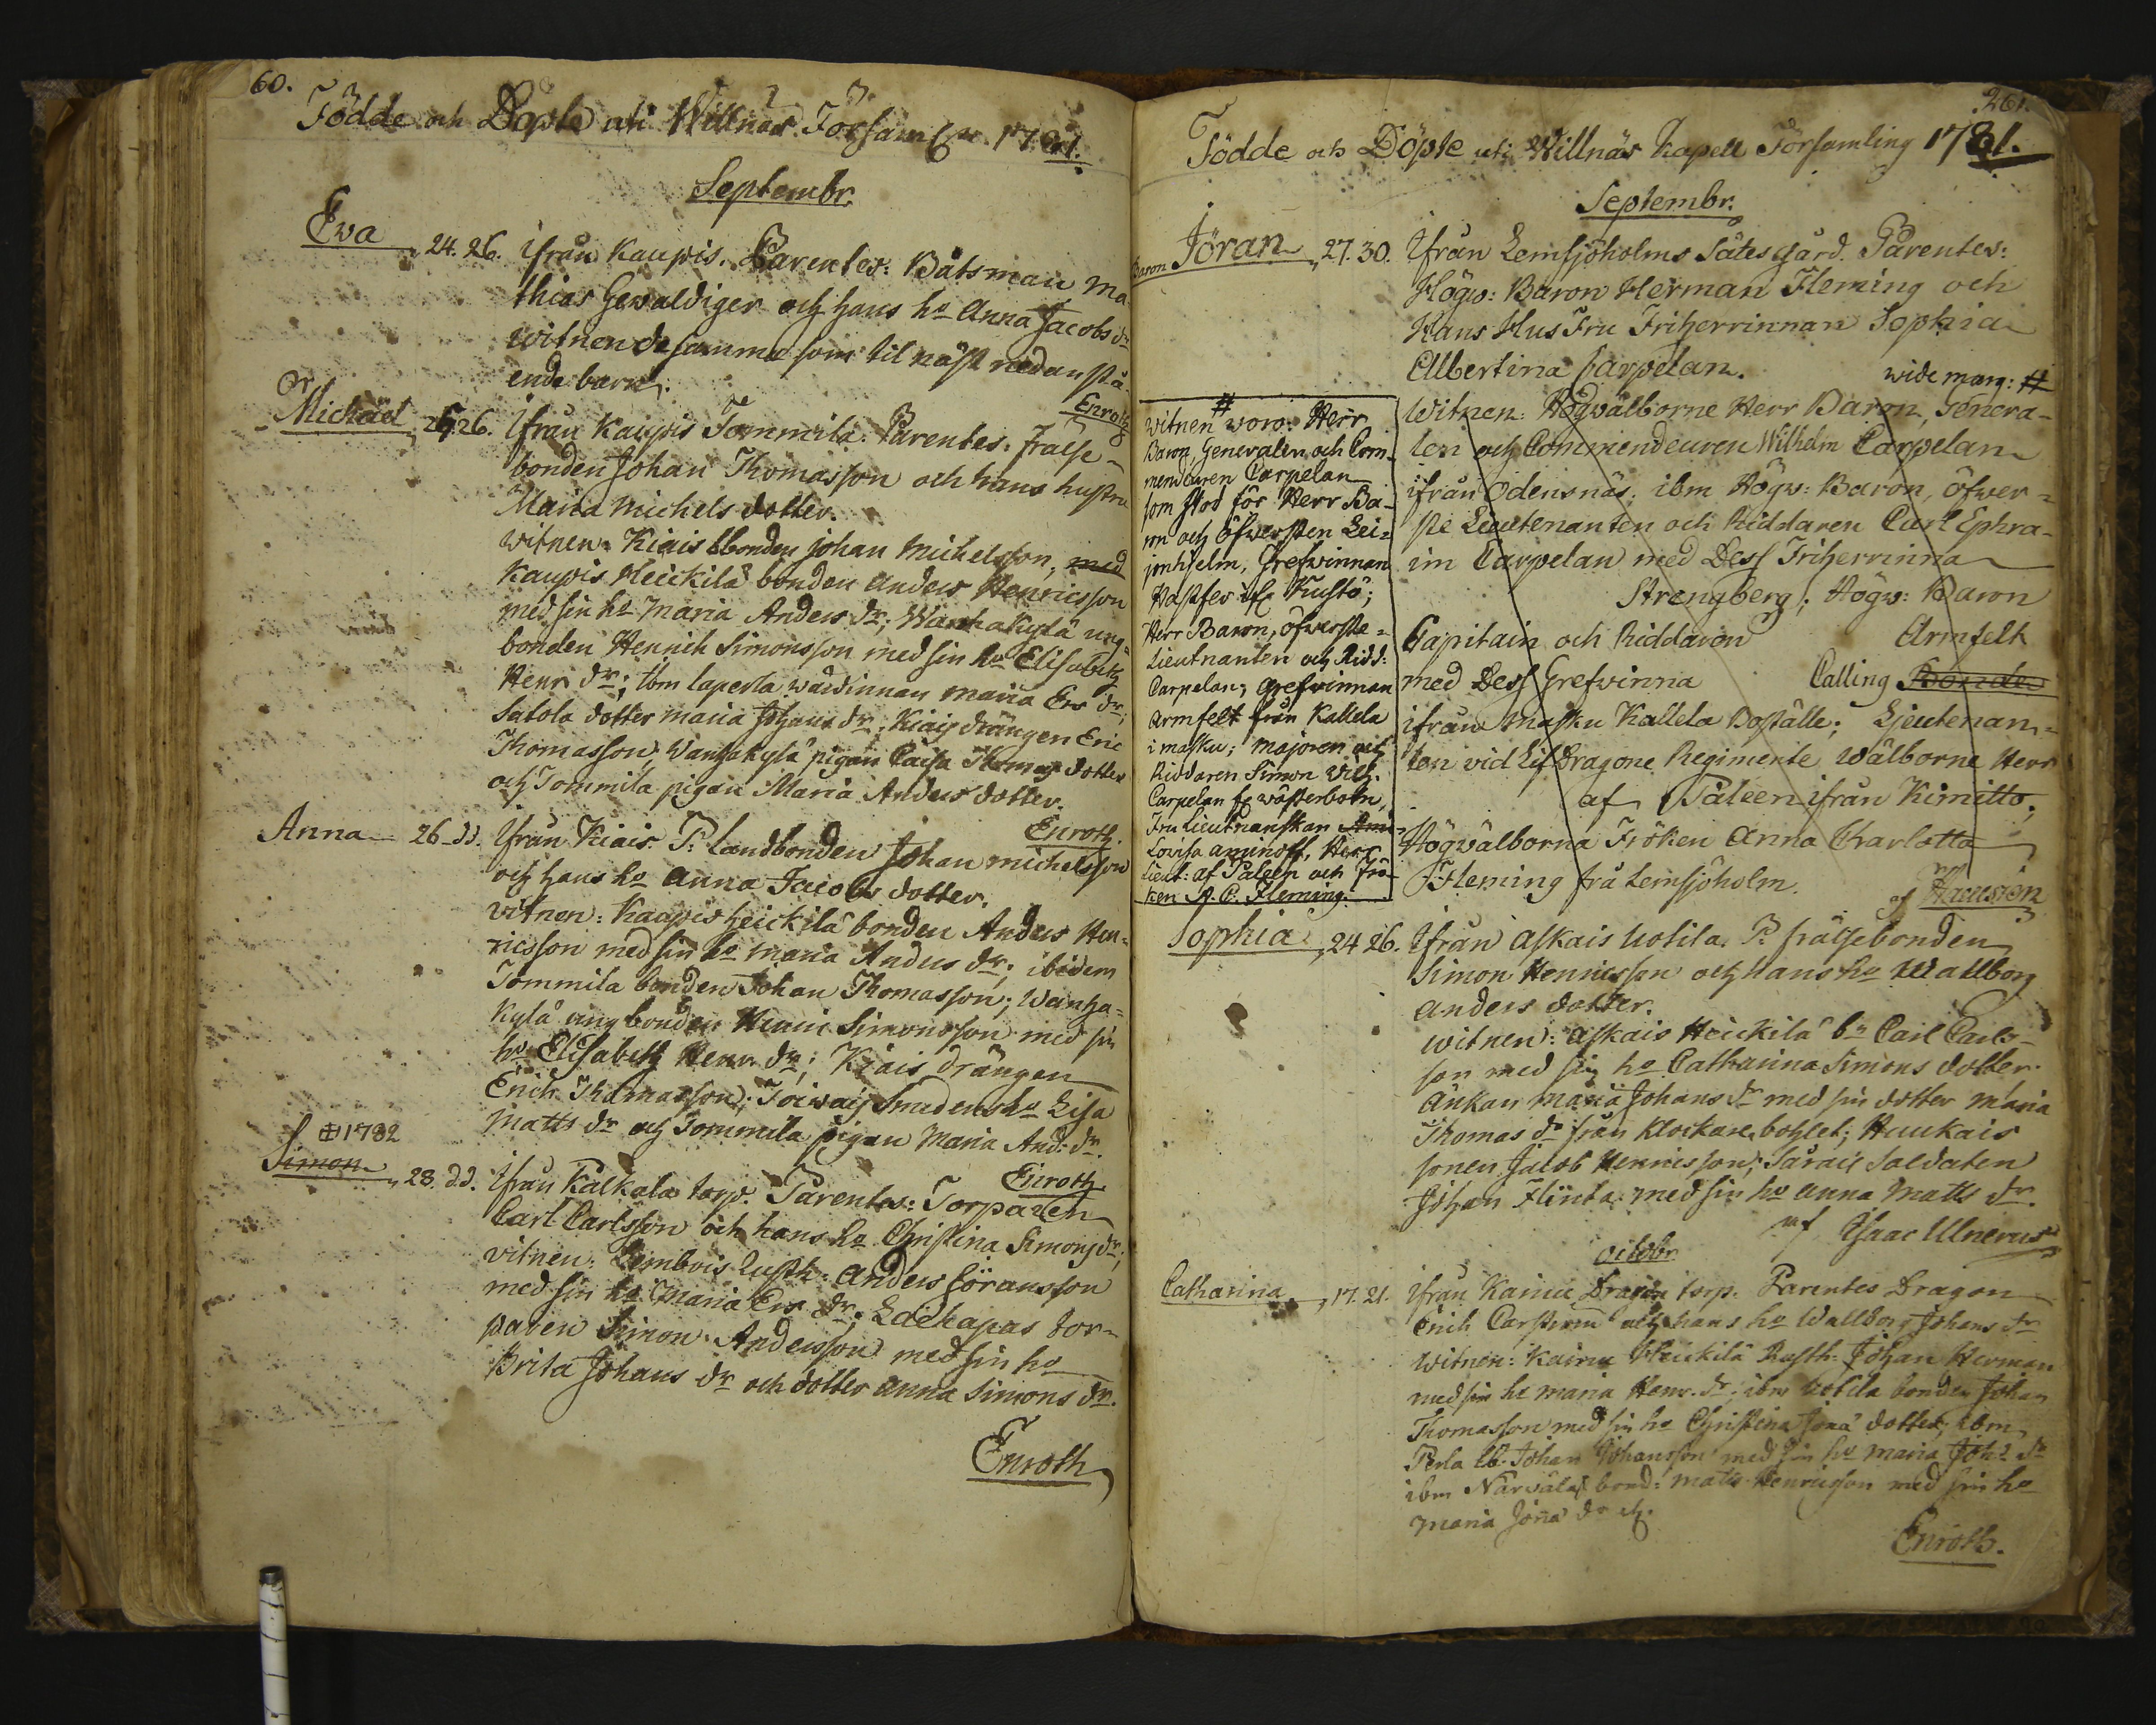 60.
Födde och Döpte uti Willnäs Församl:n 1781.
Septembr.
Ewa 24. 26. ifrån Kaupis. Parentes: Båtsman Ma
thias Gewaldiger och hans ho Anna Jacobs dr
witnen de samma som til näst nedanstå-
ende barn.
Enroth
Michäel 25. 26. Ifrån Kaupis Tommila. Parentes: Fralse-
bonden Johan Thomasson och hans hustru
Maria Michels dotter.
witnen: Kiais bonden Johan Michelsson, med
Kaupis Heickilä bonden Anders Henricsson
med sin ho Maria Anders dr; Wanhakylä ung-
bonden Henrich Simonsson med sin ho Elisabeth
Henr dr; ibm Laperla wärdinnan Maria Ers dr;
Satola dotter Maria Johans dr; Kiais drängen Eric
Thomasson; Wanhakylä pigan Caisa Thomas dotter
och Tommila pigan Maria Anders dotter.
Enroth.
Anna 26. dd. Ifrån Kiais P: Landbonden Johan Michelsson
och hans ho Anna Jacobs dotter.
vitnen: Kaupis Heickilä bonden Anders Hen-
ricsson med sin ho Maria Anders dr; ibidem
Tommila bonden Johan Thomasson; Wanha-
kylä ung bonden Henric Simonsson med sin
ho Elisabeth Henr dr; Kiais drängen
Erich Thomasson; Toiwais Smedens ho Lisa
Matts dr och Tommila pigan Maria And: dr.
Enroth
1782
Simon 28. dd. Ifrån Kalkala torp. Parentes: Torparen
Carl Carlsson och hans ho Christina Simons dr;
vitnen: Lembois Rusth: Anders Göransson
med sin ho Maria Ers dr; Laehapas tor-
paren Simon Andersson med sin ho
Brita Johans dr och dotter Anna Simons dr.
Enroth
261.
Födde och Döpte uti Willnäs Kapell Församling 1781.
Septembr.
Baron Jöran 27. 30. Ifrån Lemsjöholms Sätesgård. Parentes:
Högw: Baron Herman Fleming och
Hans HusFru Friherrinnan Sophia
Albertina Carpelan.
wide marg: #
Witnen: Högwälborne Herr Baron, Genera-
len och Commendeuren Wilhelm Carpelan
ifrån Odensnäs; ibm Högw: Baron, Öfwer-
ste Lieutenanten och Riddaren Carl Ephra-
im Carpelan med Dess Friherrinna
Strengberg; Högw: Baron
Capitain och Riddaren Armfelt
med Dess Grefvinna Calling Bonde
ifrån Masku Kallela Boställe; Lieutenan-
ten vid Lif Dragone Regimente Wälborne Herr
af Paleen ifrån Kimitto;
Högvälborna Fröken Anna Charlotta
Fleming frå Lemsjöholm.
#
witnen woro: Herr
Baron Generalen och Com-
mendeuren Carpelan
som stod för Herr Ba-
ron och Öfwersten Lei-
jonhjelm, Grefwinnan
Hastfer ifr Kustö;
Herr Baron, Öfwerste-
Lieutnanten och Ridd:
Carpelan; Grefvinnan
Armfelt från Kallela
i Masku; Majoren och
Riddaren Simon Wilh.
Carpelan fr wästerbotn,
Fru Lieutnanskan
Lovisa Aminoff, Herr
Lieut: af Paleen och Frö-
ken A. C. Fleming.
Sophia 24 26. Ifrån Askais Uotila. P. frälsebonden
Simon Henricsson och hans ho Wallborg
Anders dotter.
witnen: Askais Heickilä bn Carl Carls-
son med sin ho Catharina Simons dotter.
Änkan Maria Johans dr med sin dotter Maria
Thomas dr från Klockare bohlet; Huukais
sonen Jacob Henricsson; Särais Soldaten
Johan Flinta med sin ho Anna Matts dr.
af Isaac Ulnerus
Octobr.
Catharina 17. 21. Ifrån Kairu Dragon torp. Parentes Dragon
Erich Carström och hans ho Wallborg Johans dr
Witnen: Kairu Heickilä Rusth: Johan Herman
med sin ho Maria Henr. dr; ibm Uotila bonden Johan
Thomasson med sin ho Christina Jöra dotter; ibm
Perla LB: Johan Johansson med sin ho Maria Joh: dr
ibm Närwälä bond: Matts Henricsson med sin ho
Maria Jöra dr
Enroth.